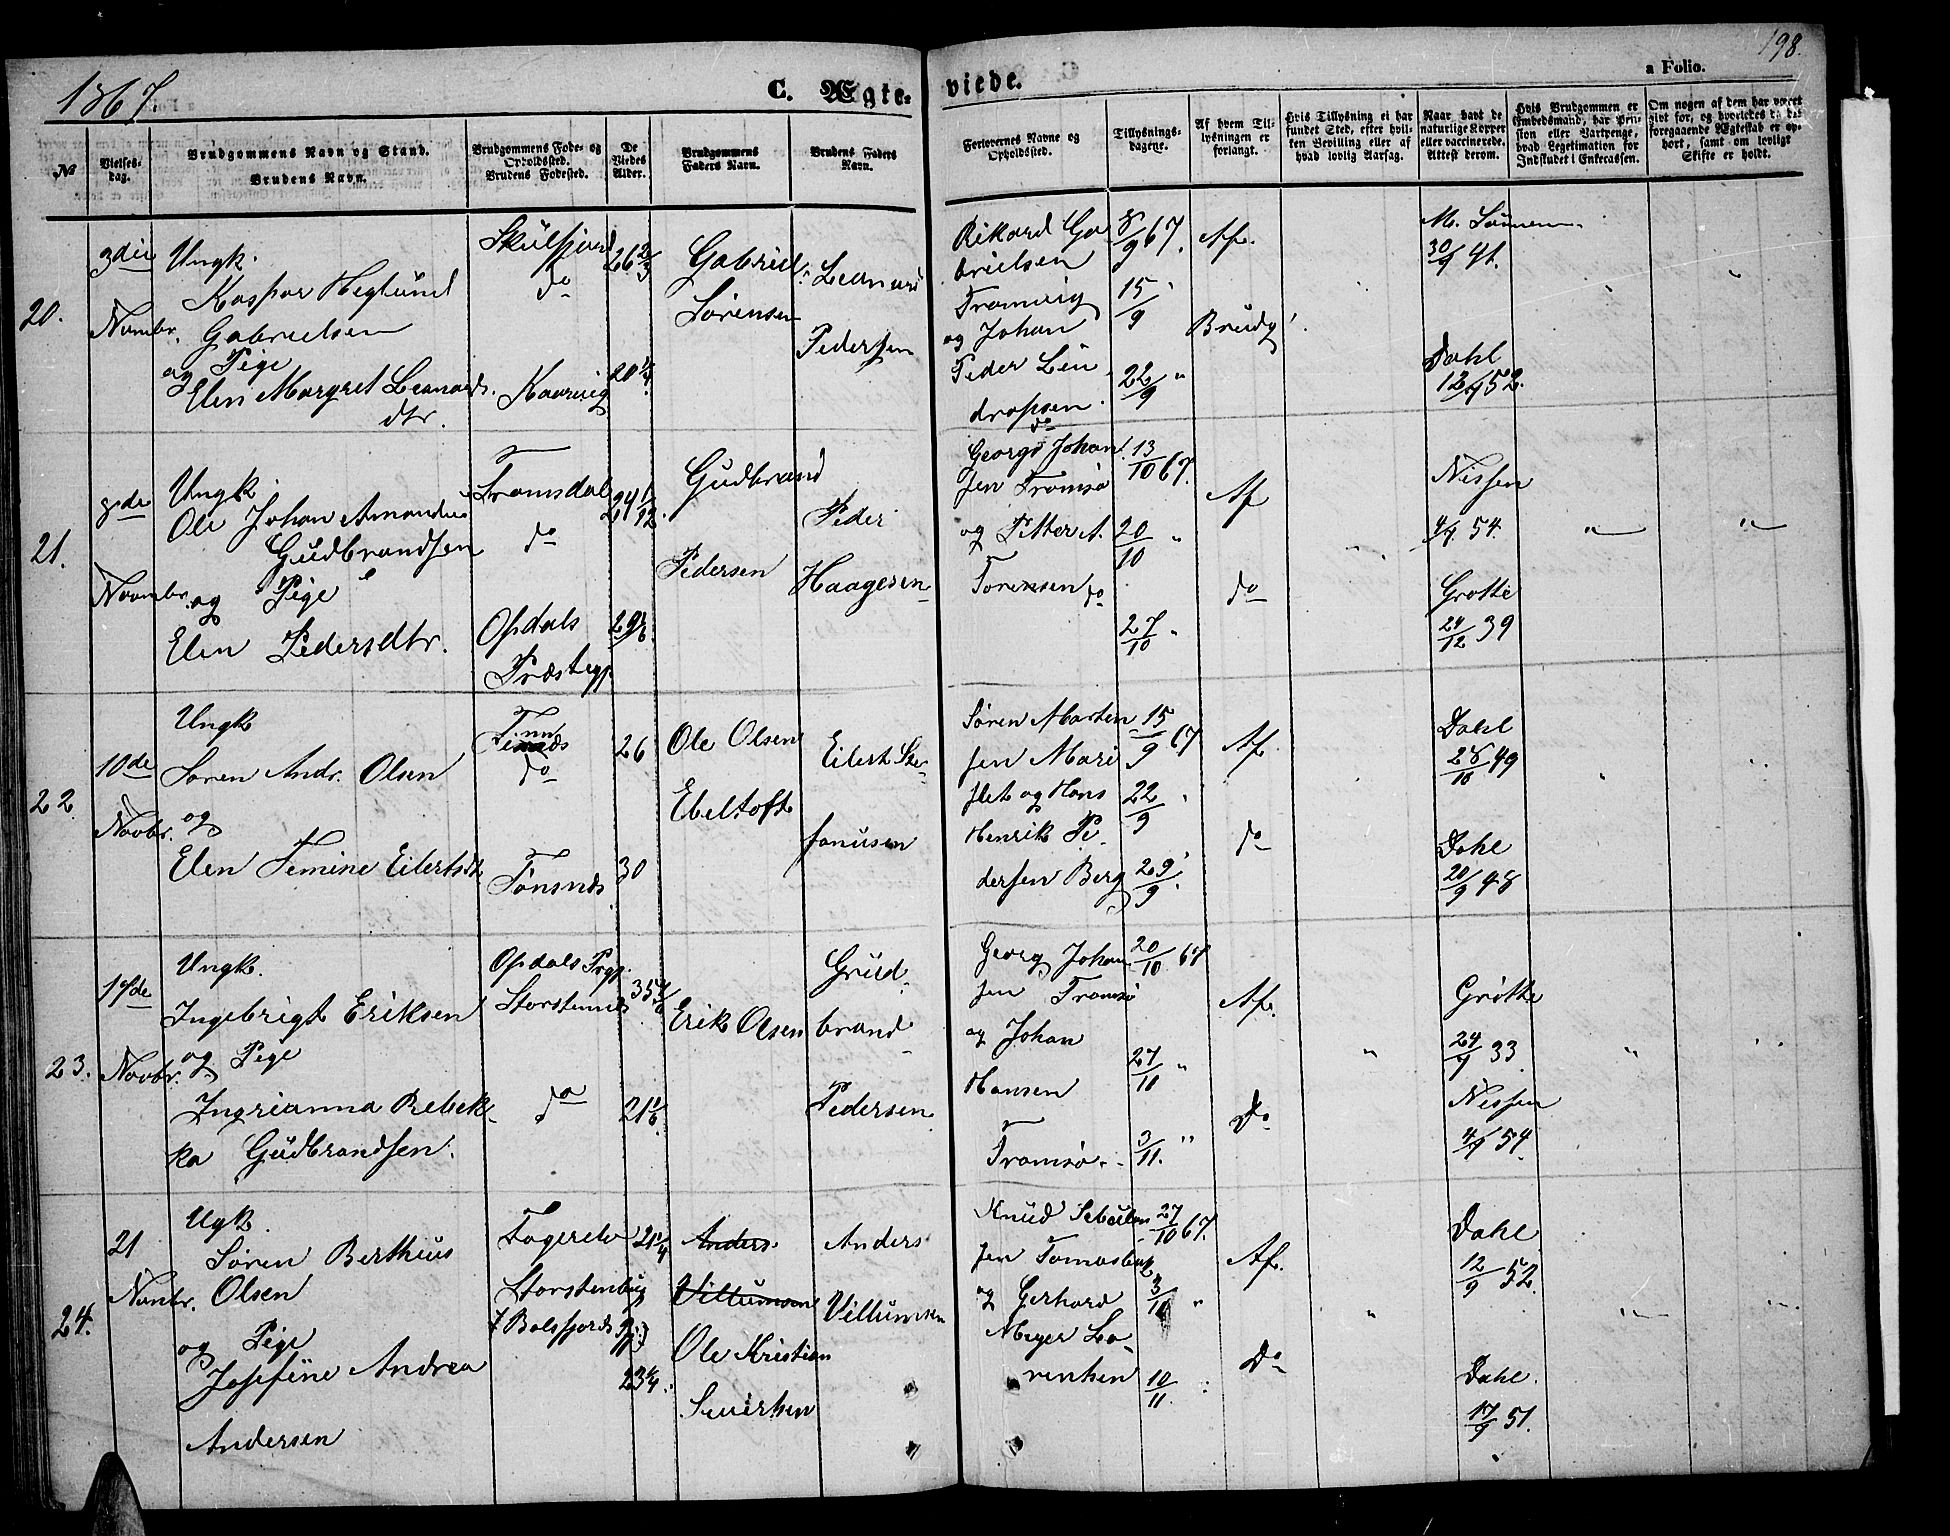 1867.
C. Ægte-
viede.
a Folio.
198.
№
Vielses-
dag.
Brudgommens Navn og Stand.
Brudens Navn.
Brudgommens Føde- og
Opholdssted.
Brudens Fødested.
De
Viedes
Alder.
Brudgommens
Faders Navn.
Brudens Faders
Navn.
Forlovernes Navne og
Opholdssted.
Tillysnings-
dagene.
Af hvem Til-
lysningen er
forlangt.
Hvis Tillysning ei har
fundet Sted, efter hvil-
ken Bevilling eller af
hvad lovlig Aarsag.
Naar havt de
naturlige Kopper
eller vaccinerede.
Attest derom.
Hvis Brudgommen er
Embedsmand, har Pen-
sion eller Vartpenge,
hvad Legitimation for
Indskudet i Enkecassen.
Om nogen af dem har været
givt før, og hvorledes da det
foregaaende Ægteskab er op-
hørt, samt om lovligt
Skifte er holdt.
20.
3die
Novmbr.
Ungk.
Kaspar Heglund
Gabrielsen
og Pige
Elen Margret Leonards
dtr.
Skulsfjord
do
Kaarvig
26 2/3
20 1/4
Gabriel
Sørensen
Leonard
Pedersen
Rikard Ga
brielsen
Tromvig
og Johan
Peder Lin
dropsen
do
8/9 67.
15/9
22/9 "
Af.
Brudg.
30/9 41.
Dahl
12/9 52.
21.
8de
Novmbr.
Ungk.
Ole Johan Amandus
Gudbrandsen
og Pige
Elen Pedersdtr.
Tromsdal
do
Opdals
Præstegj.
24 1/12
29 1/6
Gudbrand
Pedersen
Peder
Haagesen
Georg Johan
sen Tromsø
og Petter A.
Torensen do
13/10 67.
20/10 "
27/10 "
Af
do
Nissen
4/9 54.
Grøtte
24/12 39
22.
10de
Novbr.
Ungk
Søren Andr. Olsen
og
Elen Femine Eilertsdt
do
Tønsnes
26
30
Ole Olsen
Ebeltoft
Eilert Ste-
fanusen
Søren Marten
sen Mari
flet og Hans
Henrik Pe
dersen Berg
15/9 67
22/9 "
29/9 "
Af.
do
Dahl
28/10 49
Dahl
20/9 48
23.
Novbr.
Ungk.
Ingebrigt Eriksen
og Pige
Ingrianna Rebek
ka Gudbrandsen.
Opdals Prgj.
Storstennes
do
21 1/6
Erik Olsen
Gud-
brand
Pedersen
Georg Johan
sen Tromsø
og Johan
Hansen
Tromsø
20/10 67
27/10 "
3/11. "
Af.
Do
Grøtte
24/9 33
Nissen
4/9 54.
24.
21
Novbr.
Ugk.
Søren Berthius
Olsen
og Pige
Josefine Andrea
Andersen
Fagerelv
Storstenbug
i Balsfjords Pgj.
21 1/4
23 1/4.
Anders
Villumsen
Ole Kristian
Sivertsen
Anders
Villumsen
Knud Sebulon
sen Tomasbak
og Gerhard
Meyer Lo-
rentzen
27/10 67.
3/11 "
10/11
Af.
Do
Dahl
12/9 52.
Dahl.
17/9 51.